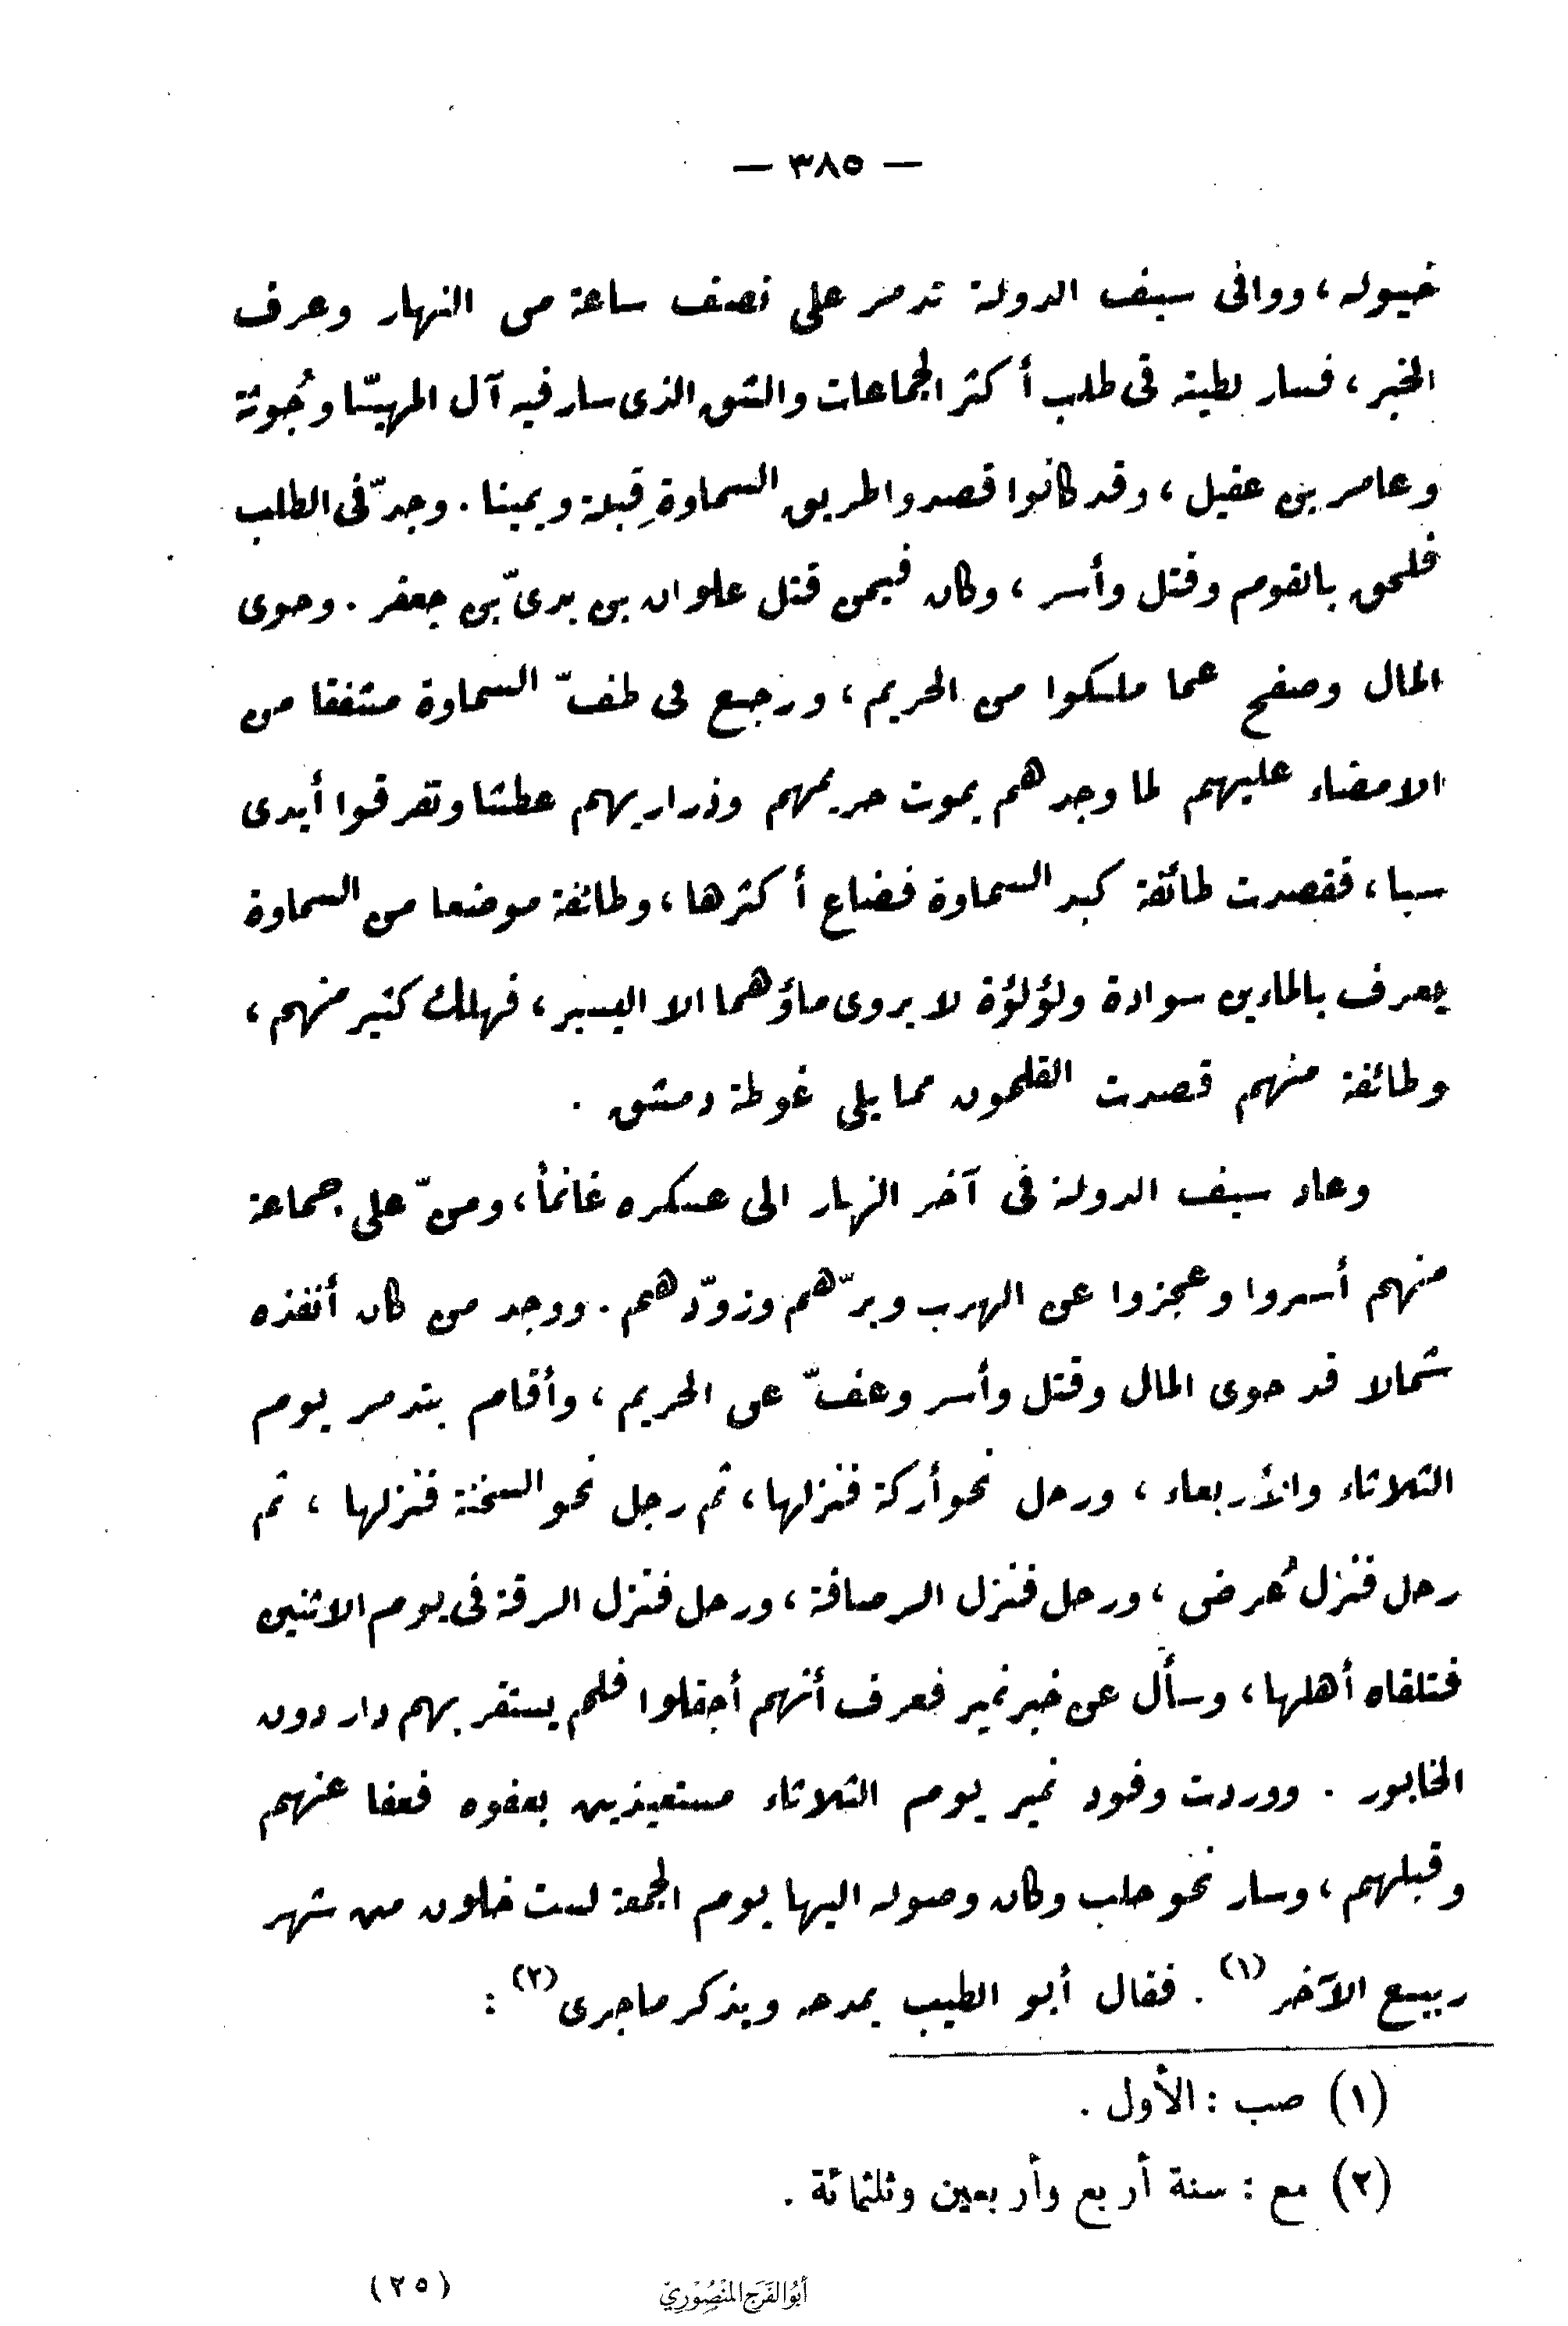 — ٣٨٥ —
خيوله ، ووافى سيف الدولة تدمر على نصف ساعة من النهار وعرف
الخبر ، فسار لطيته فى طلب أكثر الجماعات والشق الذى سار فيه آل المهيّا وجُوثة
وعامر بن عقيل ، وقد كانوا قصدوا طريق السماوة قِبلة ويمينا . وجدّ فى الطلب
فلحق بالقوم وقتل وأسر ، وكان فيمن قتل علوان بن بدىّ بن جعفر . وحوى
المال وصفح عما ملكوا من الحريم ، ورجع فى طفّ السماوة مشفقا من
الامضاء عليهم لما وجدهم يموت حريمهم وذراريهم عطشا وتفرقوا أيدى
سبا ، فقصدت طائفة كبد السماوة فضاع أكثرها ، وطائفة موضعا من السماوة
يعرف بالماءين سوادة ولؤلؤة لا يروى ماؤهما الا اليسير ، فهلك كثير منهم ،
وطائفة منهم قصدت القلمون مما يلى غوطة دمشق .
وعاد سيف الدولة فى آخر النهار الى عسكره غانمأ ، ومنّ على جماعة
منهم أسروا وعجزوا عن الهرب وبرّهم وزوّدهم . ووجد من كان أنفذه
شمالا قد حوى المال وقتل وأسر وعفّ عن الحريم ، وأقام بتدمر يوم
الثلاثاء والأربعاء ، ورحل نحو أركة فنزلها ، ثم رحل نحو السخنة فنزلها ، ثم
رحل فنزل عُرض ، ورحل فنزل الرصافة ، ورحل فنزل الرقة فى يوم الاثنين
فتلقاه أهلها ، وسأل عن خبر نمير فعرف أنهم أجفلوا فلم يستقر بهم دار دون
الخابور . ووردت وفود نمير يوم الثلاثاء مستعيذين بعفوه فعفا عنهم
وقبلهم ، وسار نحو حلب وكان وصوله اليها يوم الجمعة لست خلون من شهر
ربيع الآخر (١) . فقال أبو الطيب يمدحه ويذكر ما جرى (٢) :
(١) صب : الأول .
(٢) مع : سنة أربع وأربعين وثلثمائة .
أبو الفرج المنصوري
(٢٥)